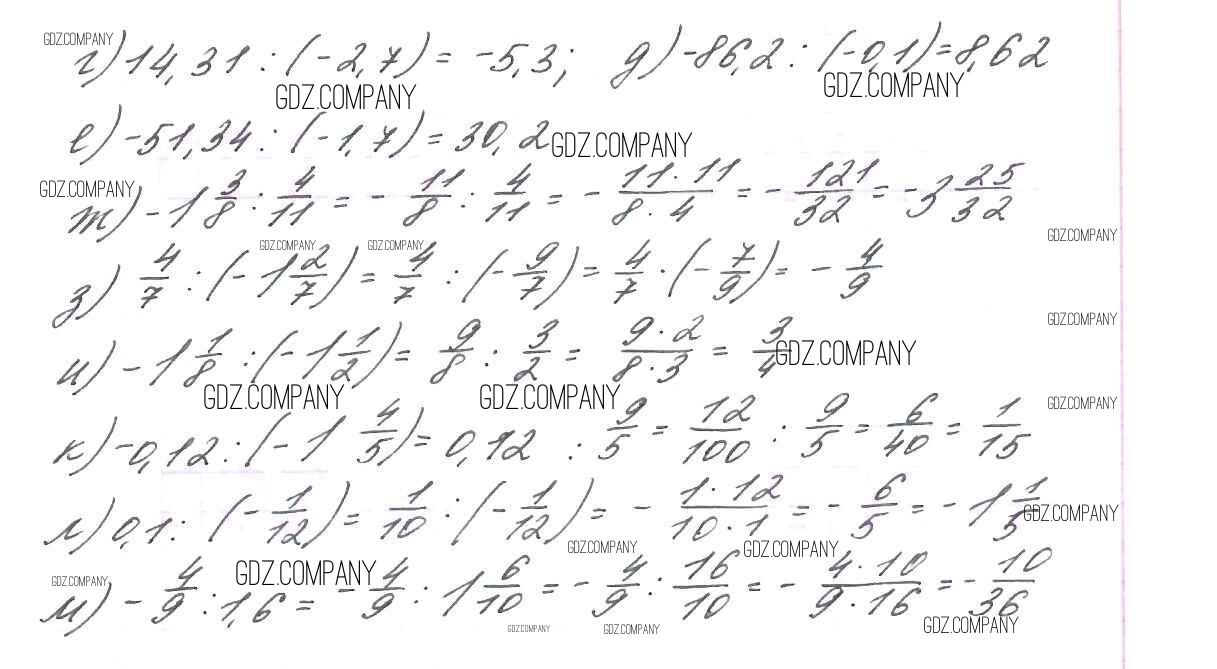 GDZ.COMPANY
г) 14,31 : (-2,7) = -5,3; д) -86,2 : (-0,1) = 8,62
GDZ.COMPANY GDZ.COMPANY
е) -51,34 : (-1,7) = 30,2 GDZ.COMPANY
GDZ.COMPANY
ж) -1 3/8 : 4/11 = - 11/8 : 4/11 = - 11·11/8·4 = - 121/32 = -3 25/32
GDZ.COMPANY GDZ.COMPANY GDZ.COMPANY
з) 4/7 : (-1 2/7) = 4/7 : (- 9/7) = 4/7 · (- 7/9) = - 4/9
GDZ.COMPANY
и) -1 1/8 : (-1 1/2) = 9/8 : 3/2 = 9·2/8·3 = 3/4 GDZ.COMPANY
GDZ.COMPANY GDZ.COMPANY GDZ.COMPANY
к) -0,12 : (-1 4/5) = 0,12 : 9/5 = 12/100 : 9/5 = 6/40 = 1/15
л) 0,1 : (- 1/12) = 1/10 : (- 1/12) = - 1·12/10·1 = - 6/5 = -1 1/5 GDZ.COMPANY
GDZ.COMPANY GDZ.COMPANY
GDZ.COMPANY GDZ.COMPANY
м) - 4/9 : 1,6 = - 4/9 : 1 6/10 = - 4/9 : 16/10 = - 4·10/9·16 = - 10/36
GDZ.COMPANY GDZ.COMPANY GDZ.COMPANY